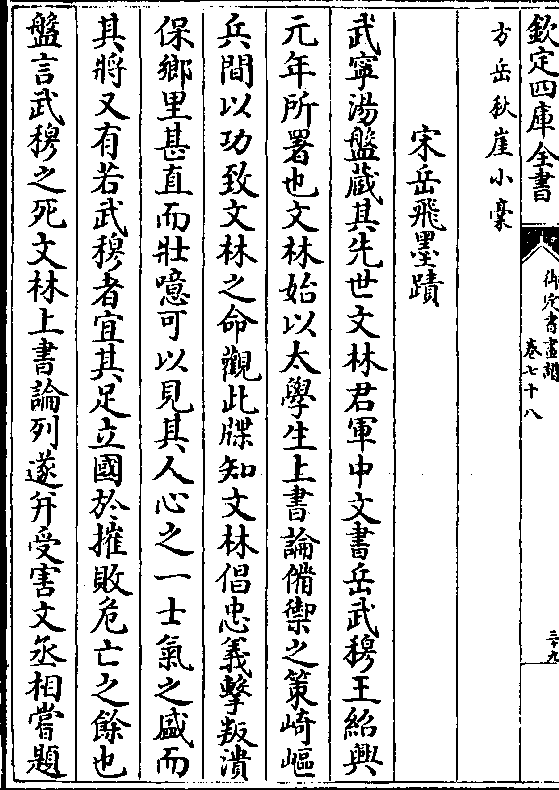 欽定四庫全書
御定書畫譜
卷七十八
三十九
方岳秋崖小稾
宋岳飛墨蹟
武寧湯盤蔵其先世文林君軍中文書岳武穆王紹興
元年所署也文林始以太學生上書論備禦之策崎嶇
兵間以功致文林之命觀此牒知文林倡忠義擊叛潰
保鄉里甚直而壯噫可以見其人心之一士氣之盛而
其將又有若武穆者宜其足立國於摧敗危亡之餘也
盤言武穆之死文林上書論列遂并受害文丞相嘗題